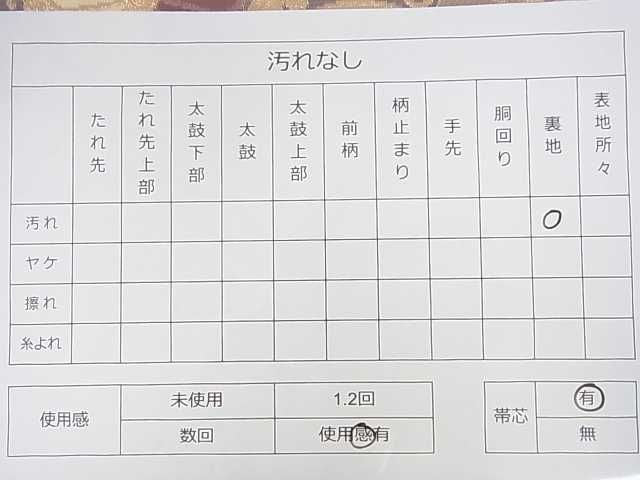 汚れなし
たれ先 たれ先上部 太鼓下部 太鼓 太鼓上部 前柄 柄止まり 手先 胴回り 裏地 表地所々
汚れ ○
ヤケ
擦れ
糸よれ
使用感 未使用 1.2回
数回 使用感有
帯芯 有
無